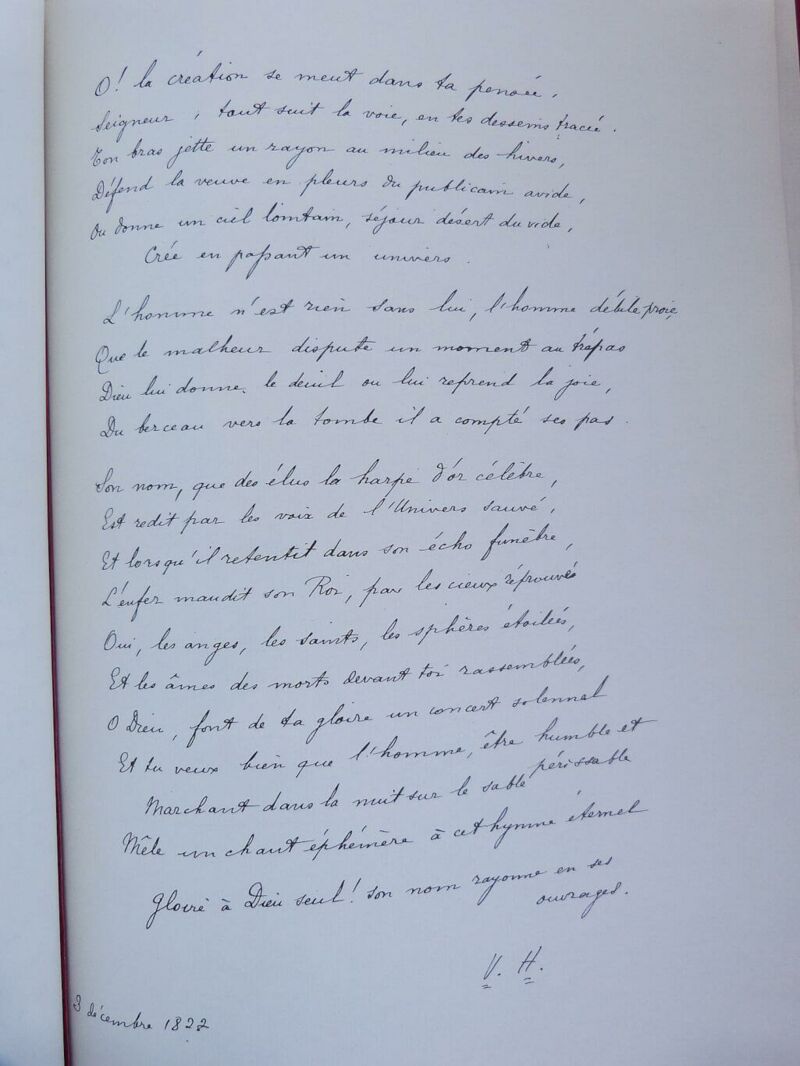 O! la création se meut dans ta pensée,
Seigneur, tout suit la voie, en tes desseins tracée.
Ton bras jette un rayon au milieu des hivers,
Défend la veuve en pleurs du publicain avide,
Ou donne un ciel lointain, séjour désert du vide,
Crée en passant un univers.
L'homme n'est rien sans lui, l'homme débile proie,
Que le malheur dispute un moment au trépas
Dieu lui donne le deuil ou lui reprend la joie,
Du berceau vers la tombe il a compté ses pas.
Son nom, que des élus la harpe d'or célèbre,
Est redit par les voix de l'Univers sauvé,
Et lorsqu'il retentit dans son écho funèbre,
L'enfer maudit son Roi, par les cieux réprouvés
Oui, les anges, les saints, les sphères étoilées,
Et les âmes des morts devant toi rassemblées,
O Dieu, font de ta gloire un concert solennel
Et tu veux bien que l'homme, être humble et
périssable
Marchant dans la nuit sur le sable
Mêle un chant éphémère à cet hymne éternel
Gloire à Dieu seul! son nom rayonne en ses
ouvrages.
V. H.
3 décembre 1822